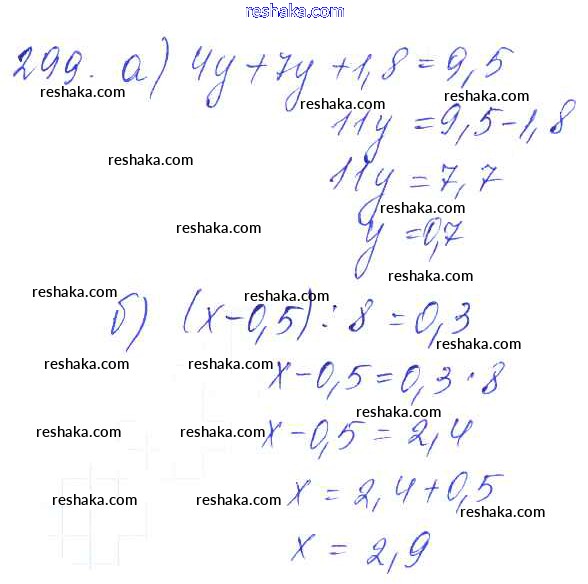 reshaka.com
299. а) 4y + 7y + 1,8 = 9,5
reshaka.com reshaka.com reshaka.com
11y = 9,5 - 1,8
reshaka.com
11y = 7,7
reshaka.com
reshaka.com
y = 0,7
reshaka.com
reshaka.com reshaka.com
б) (x - 0,5) : 8 = 0,3
reshaka.com
reshaka.com reshaka.com
x - 0,5 = 0,3 · 8
reshaka.com
reshaka.com reshaka.com
x - 0,5 = 2,4
reshaka.com
x = 2,4 + 0,5
reshaka.com reshaka.com
reshaka.com
x = 2,9
reshaka.com